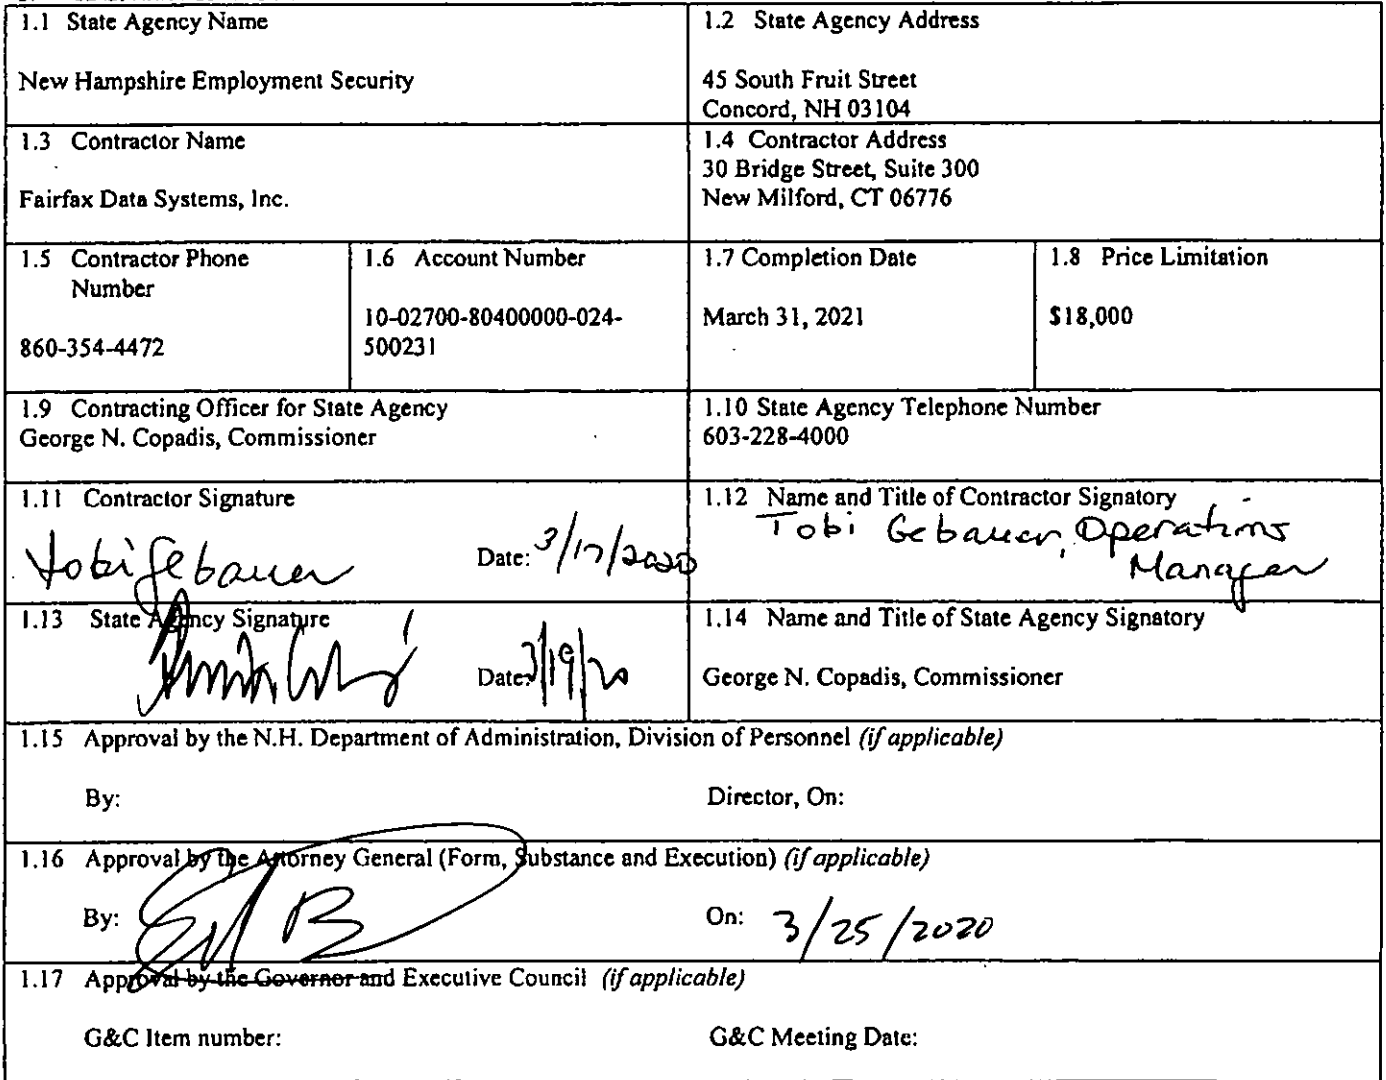 1.1 State Agency Name
New Hampshire Employment Security
1.2 State Agency Address
45 South Fruit Street
Concord, NH 03104
1.3 Contractor Name
Fairfax Data Systems, Inc.
1.4 Contractor Address
30 Bridge Street, Suite 300
New Milford, CT 06776
1.5 Contractor Phone
Number
860-354-4472
1.6 Account Number
10-02700-80400000-024-
500231
1.7 Completion Date
March 31, 2021
1.8 Price Limitation
$18,000
1.9 Contracting Officer for State Agency
George N. Copadis, Commissioner
1.10 State Agency Telephone Number
603-228-4000
1.11 Contractor Signature
Tobi Gebauer Date: 3/17/2020
1.12 Name and Title of Contractor Signatory
Tobi Gebauer, Operations
Manager
1.13 State Agency Signature
Date: 3/19/20
1.14 Name and Title of State Agency Signatory
George N. Copadis, Commissioner
1.15 Approval by the N.H. Department of Administration, Division of Personnel (if applicable)
By: Director, On:
1.16 Approval by the Attorney General (Form, Substance and Execution) (if applicable)
By: On: 3/25/2020
1.17 Approval by the Governor and Executive Council (if applicable)
G&C Item number: G&C Meeting Date: